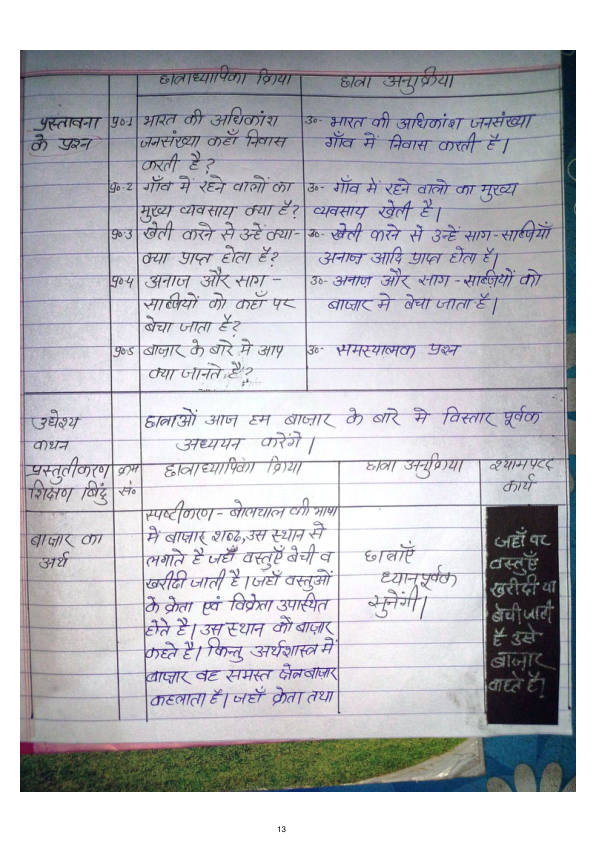 छात्राध्यापिका क्रिया छात्रा अनुक्रिया
प्रस्तावना के प्रश्न
प्र०1 भारत की अधिकांश
जनसंख्या कहाँ निवास
करती है?
उ०- भारत की अधिकांश जनसंख्या
गाँव में निवास करती है।
प्र०2 गाँव में रहने वालों का
मुख्य व्यवसाय क्या है?
उ०- गाँव में रहने वालो का मुख्य
व्यवसाय खेती है।
प्र०3 खेती करने से उन्हें क्या-
क्या प्राप्त होता है?
उ०- खेती करने से उन्हें साग-सब्ज़ियाँ
अनाज आदि प्राप्त होता है।
प्र०4 अनाज और साग-
सब्ज़ियों को कहाँ पर
बेचा जाता है?
उ०- अनाज और साग-सब्ज़ियों को
बाज़ार मे बेचा जाता है।
प्र०5 बाज़ार के बारे मे आप
क्या जानते है?
उ०- समस्यात्मक प्रश्न
उधेश्य
कथन
छात्राओं आज हम बाज़ार के बारे मे विस्तार पूर्वक
अध्ययन करेंगे।
प्रस्तुतीकरण
शिक्षण बिंदु
क्रम
सं०
छात्राध्यापिका क्रिया
छात्रा अनुक्रिया
श्यामपट्ट
कार्य
बाज़ार का
अर्थ
स्पष्टीकरण - बोलचाल की भाषा
में बाज़ार शब्द, उस स्थान से
लगाते है जहाँ वस्तुएँ बेची व
खरीदी जाती है। जहाँ वस्तुओं
के क्रेता एवं विक्रेता उपास्थित
होते है। उस स्थान को बाज़ार
कहते है। किन्तु अर्थशास्त्र में
बाज़ार वह समस्त क्षेत्र बाज़ार
कहलाता है। जहाँ क्रेता तथा
छात्राएँ
ध्यानपूर्वक
सुनेंगी।
जहाँ पर
वस्तुएँ
खरीदी या
बेची जाती
है उसे
बाज़ार
कहते है।
13